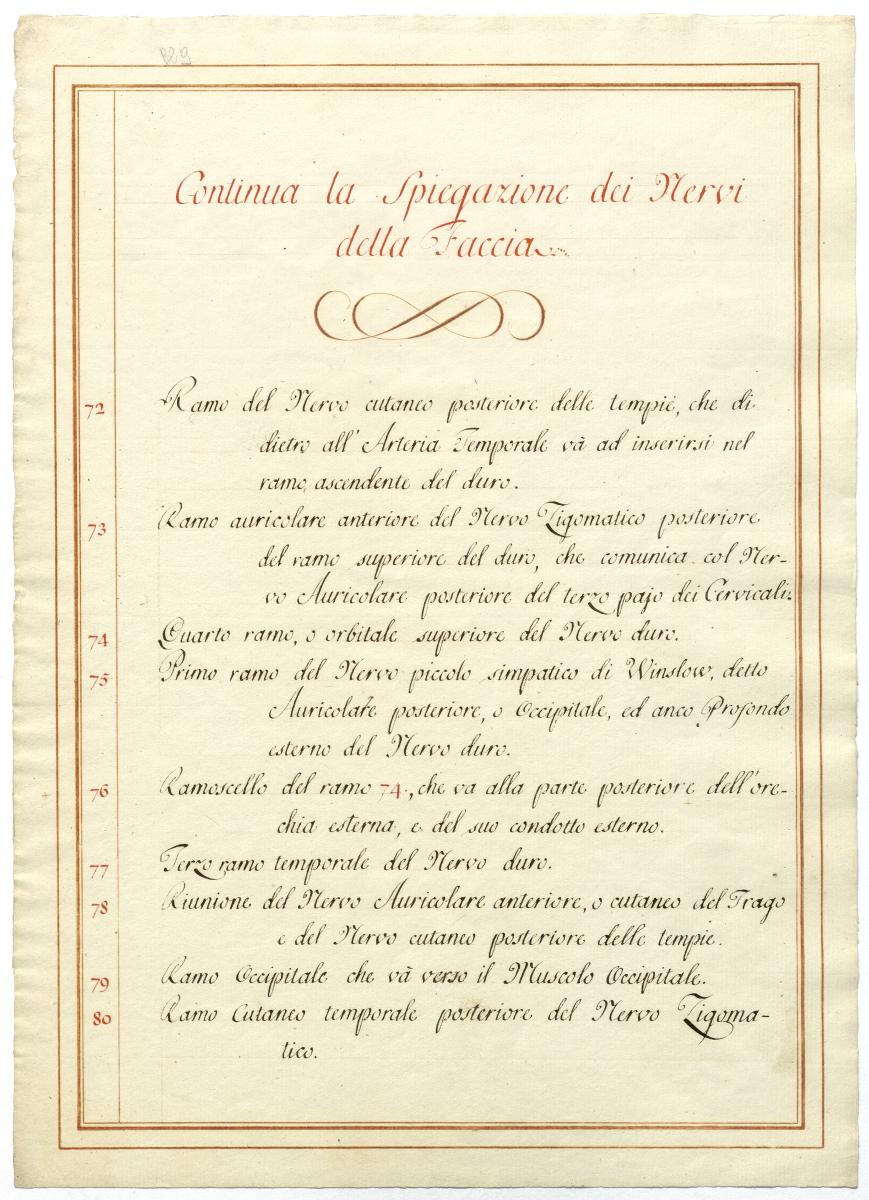 229
Continua la Spiegazione dei Nervi
della Faccia
72 Ramo del Nervo cutaneo posteriore delle tempie, che di
dietro all'Arteria Temporale và ad inserirsi nel
ramo ascendente del duro.
73 Ramo auricolare anteriore del Nervo Zigomatico posteriore
del ramo superiore del duro, che comunica col Ner-
vo Auricolare posteriore del terzo pajo dei Cervicali.
74 Quarto ramo, o orbitale superiore del Nervo duro.
75 Primo ramo del Nervo piccolo simpatico di Winslow, detto
Auricolare posteriore, o Occipitale, ed anco Profondo
esterno del Nervo duro.
76 Ramoscello del ramo 74., che va alla parte posteriore dell'ore-
chia esterna, e del suo condotto esterno.
77 Terzo ramo temporale del Nervo duro.
78 Riunione del Nervo Auricolare anteriore, o cutaneo del Trago
e del Nervo cutaneo posteriore delle tempie.
79 Ramo Occipitale che và verso il Muscolo Occipitale.
80 Ramo Cutaneo temporale posteriore del Nervo Zigoma-
tico.